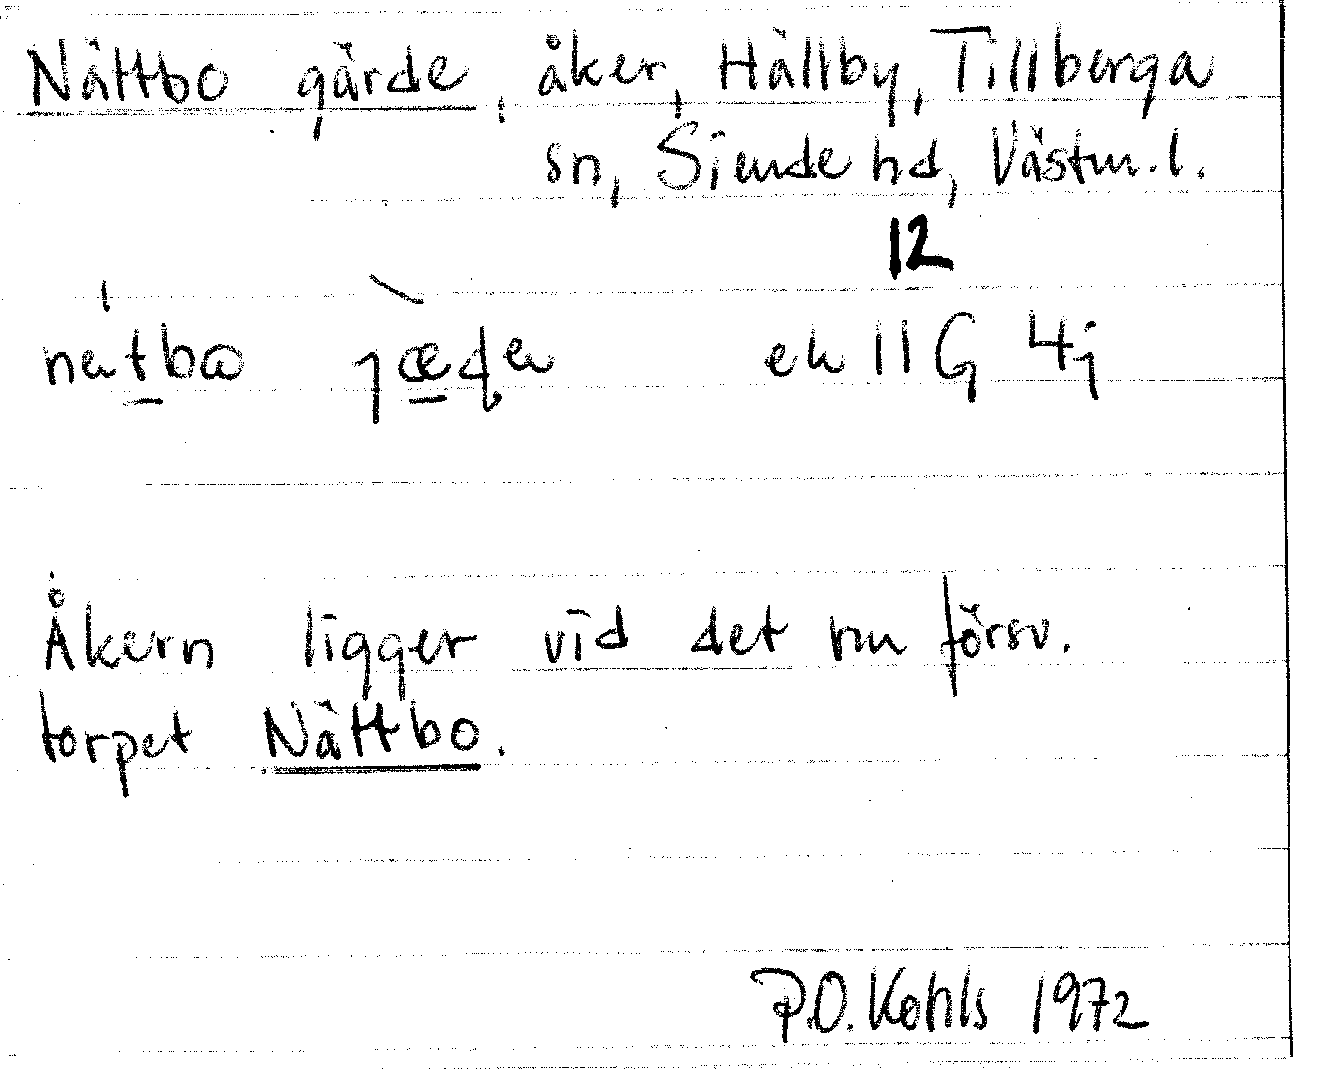 Nättbo gärde, åker, Hällby, Tillberga
sn, Siende hd, Västm. l.
12
ek 11G 4j
Åkern ligger vid det nu försv.
torpet Nättbo.
P.O. Kohls 1972